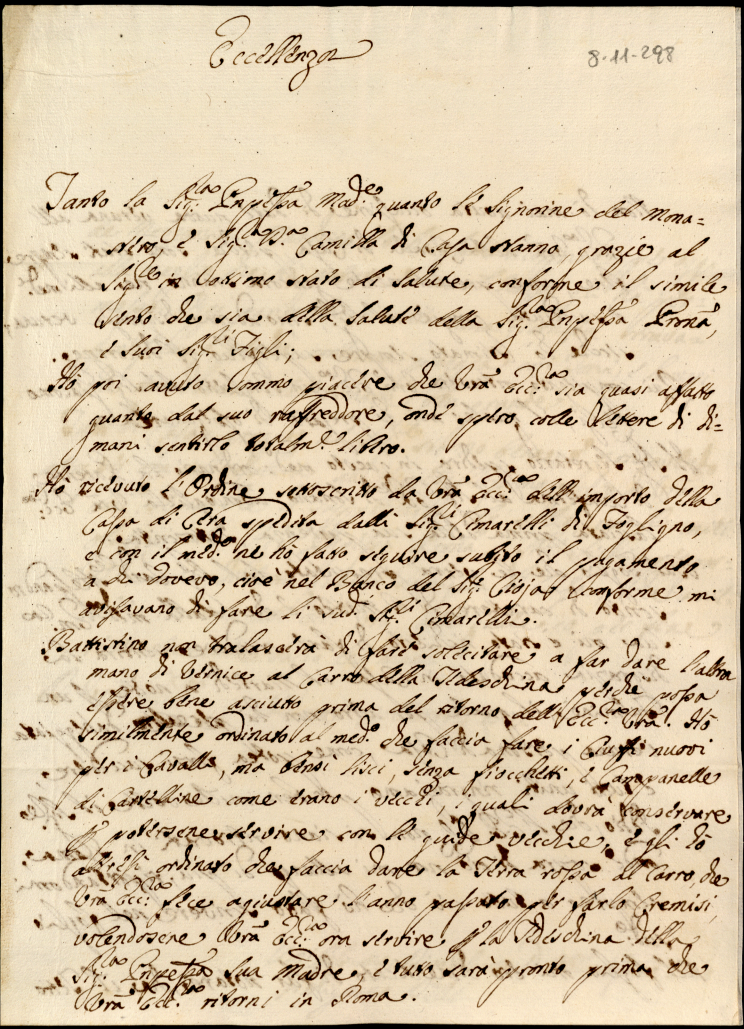 Eccellenza
8-11-298
Tanto la Sig.ra Pnpessa Mad.e quanto le Signorine del Mona=
stero, e Sig.ra D.a Camilla di Casa stanno, grazie al
Sig.re in ottimo stato di salute, conforme il simile
sento che sia della salute della Sig.ra Pnpessa
e suoi Sig.ri Figli;
Hò poi avuto sommo piacere che Vrã Ecc.za sia quasi affatto
guarita dal suo raffreddore, onde spero colle lettere di di=
mani sentirlo totalm.e libero.
Hò ricevuto l'Ordine sottoscritto da Vrã Ecc.za dell'importo della
Cassa di Cera spedita dalli Sig.ri Cimarelli di Fogligno,
e con il med.o ne hò fatto seguire subito il pagamento
a chi dovevo, cioè nel Banco del Sig.r Cioja conforme mi
avisavano di fare li sud.i Sig.ri Cimarelli.
Battistino non tralascerà di fare solecitare a far dare l'altra
mano di vernice al Carro della Tedeschina perche possa
essere bene asciuto prima del ritorno dell'Ecc.za Vrã. Hò
similmente ordinato al med.o che faccia fare i Ciuffi nuovi
per i Cavalli, ma bensì lisci, senza fiocchetti, e Campanelle
di Cartelline come erano i vecchi, i quali dovrà conservare
p potersene servire con le guide vecchie, e gli hò
altresì ordinato che faccia dare la Terra rossa al Carro che
Vrã Ecc.za fece agiustare l'anno passato per farlo Cremisi,
volendosene Vrã Ecc.za ora servire p la Tedeschina della
Sig.ra Pnpessa Sua Madre, e tutto sarà pronto prima che
Vrã Ecc.za ritorni in Roma.